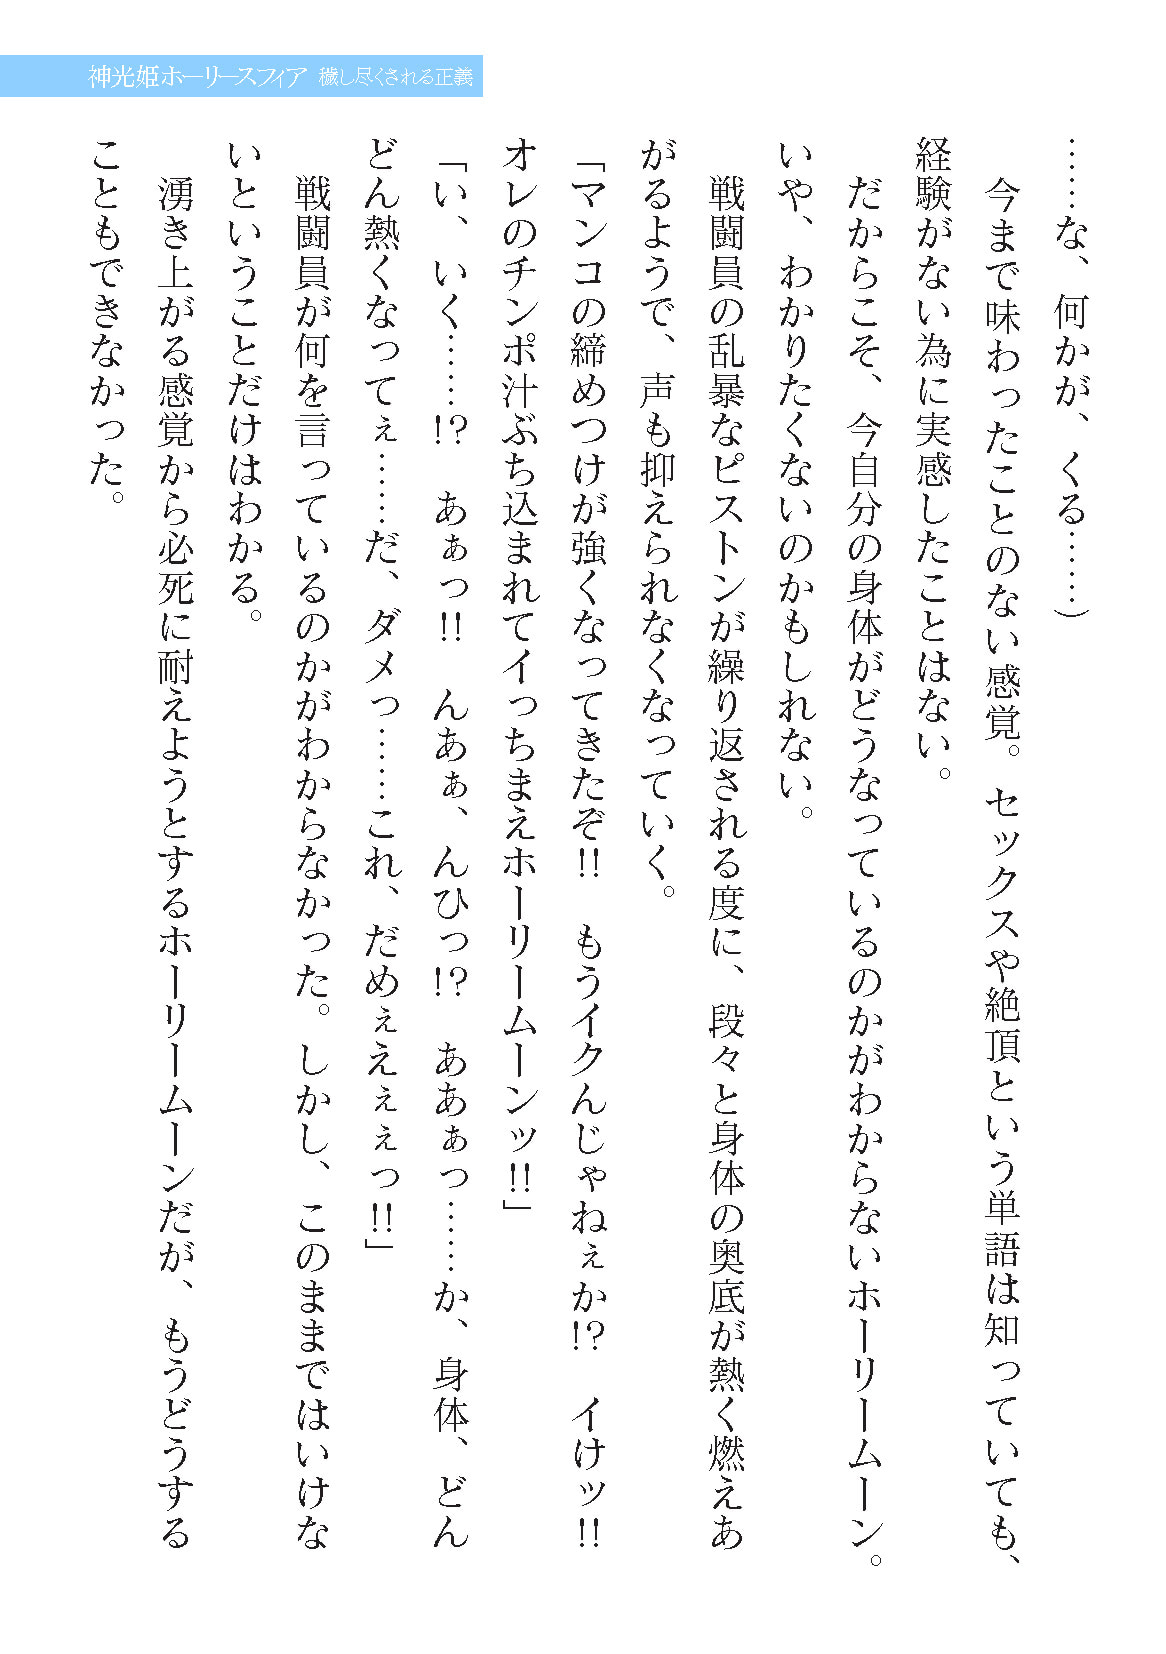 神光姫ホーリースフィア 穢し尽くされる正義
……な、何かが、くる……）
　今まで味わったことのない感覚。セックスや絶頂という単語は知っていても、
経験がない為に実感したことはない。
　だからこそ、今自分の身体がどうなっているのかがわからないホーリームーン。
いや、わかりたくないのかもしれない。
　戦闘員の乱暴なピストンが繰り返される度に、段々と身体の奥底が熱く燃えあ
がるようで、声も抑えられなくなっていく。
「マンコの締めつけが強くなってきたぞ!!　もうイクんじゃねぇか!?　イけッ!!
オレのチンポ汁ぶち込まれてイっちまえホーリームーンッ!!」
「い、いく……!?　あぁっ!!　んあぁ、んひっ!?　ああぁっ……か、身体、どん
どん熱くなってぇ……だ、ダメっ……これ、だめぇえぇぇっ!!」
　戦闘員が何を言っているのかがわからなかった。しかし、このままではいけな
いということだけはわかる。
　湧き上がる感覚から必死に耐えようとするホーリームーンだが、もうどうする
こともできなかった。